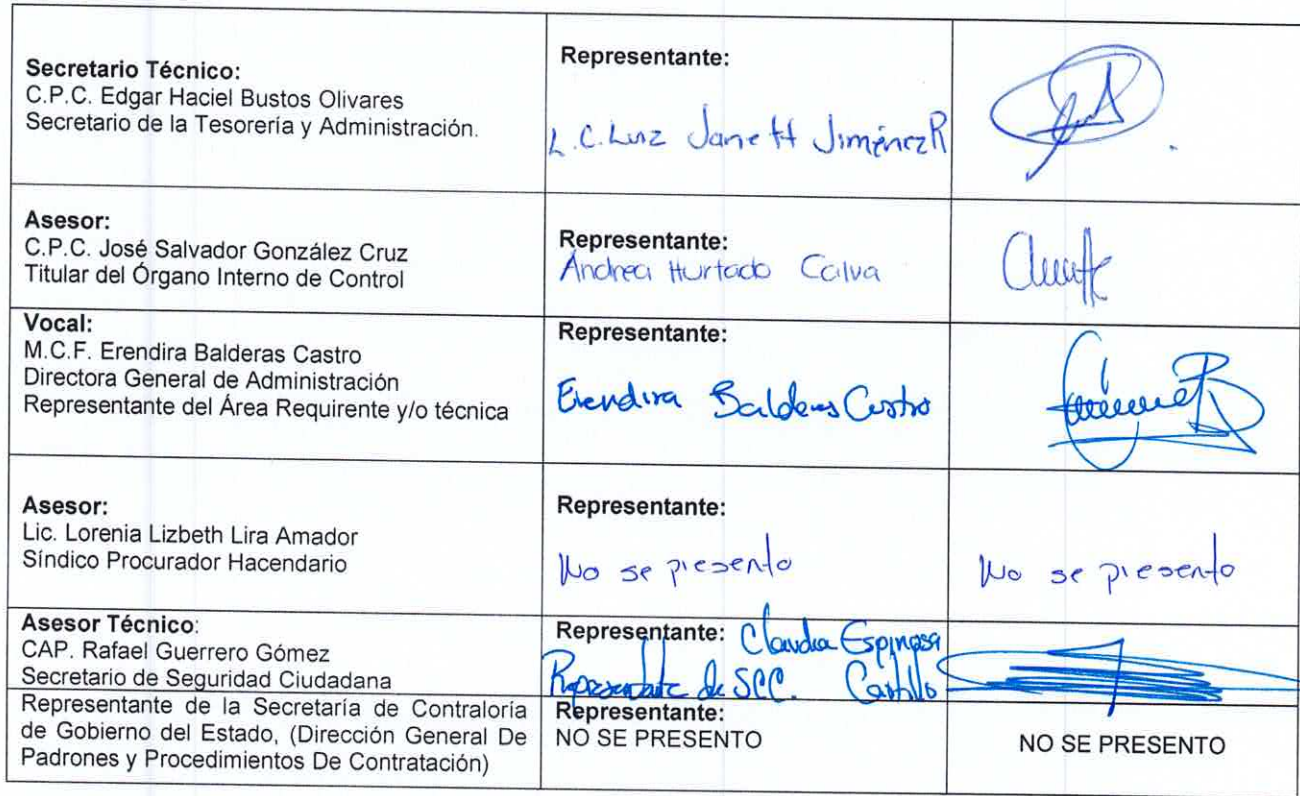 Secretario Técnico:
C.P.C. Edgar Haciel Bustos Olivares
Secretario de la Tesorería y Administración.
Representante:
L.C. Luz Janett Jiménez R
Asesor:
C.P.C. José Salvador González Cruz
Titular del Órgano Interno de Control
Representante:
Andrea Hurtado Calva
Vocal:
M.C.F. Erendira Balderas Castro
Directora General de Administración
Representante del Área Requirente y/o técnica
Representante:
Erendira Balderas Castro
Asesor:
Lic. Lorenia Lizbeth Lira Amador
Síndico Procurador Hacendario
Representante:
No se presento
No se presento
Asesor Técnico:
CAP. Rafael Guerrero Gómez
Secretario de Seguridad Ciudadana
Representante: Claudia Espinosa
Representante de Castillo
Representante de la Secretaría de Contraloría
de Gobierno del Estado, (Dirección General De
Padrones y Procedimientos De Contratación)
Representante:
NO SE PRESENTO
NO SE PRESENTO